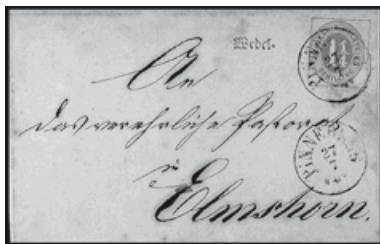 Wedel.
1¼
An
das verehrliche Pastorat
PINNEBERG
zu
Elmshorn.